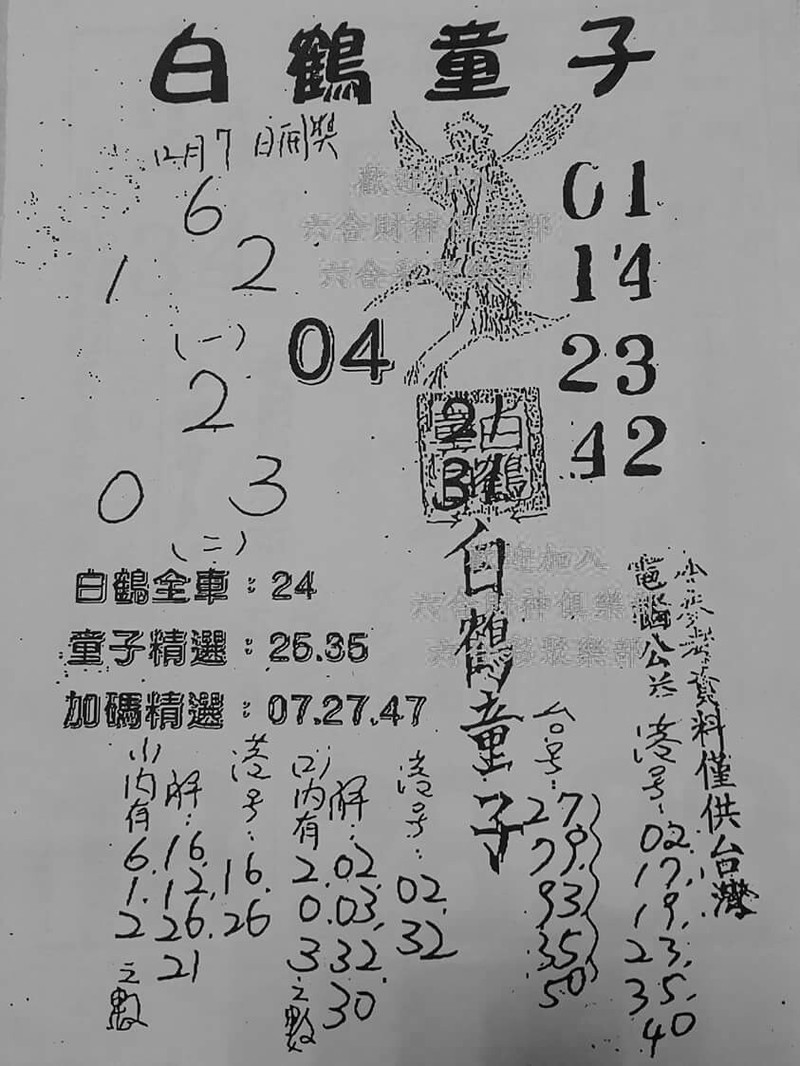 白鶴童子
12月7日開獎
6
1 2
(一)
2
0 3
(二)
04
01
14
23
42
歡迎加入
六合財神俱樂部
六合彩聚樂部
21
31
白鶴
白鶴童子
歡迎加入
六合財神俱樂部
六合彩聚樂部
白鶴全車:24
童子精選:25.35
加碼精選:07.27.47
(1)內有6.1.2之數
解:16.12.26.21
港号:16.26
(2)內有2.0.3之數
解:02.03.32.30
港号:02.32
台号:27.79.93.35.50
港号:02.17.19.23.35.40
資料僅供台灣